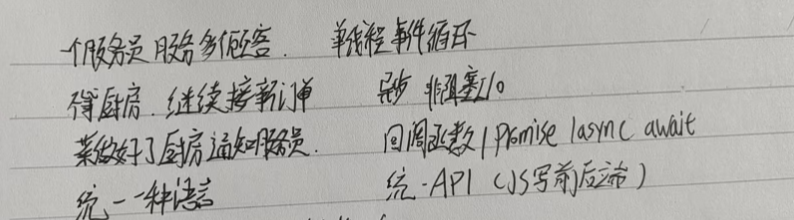 一个服务员服务多个顾客. 单线程事件循环
得厨房. 继续接新订单 异步 非阻塞I/O
菜做好了厨房通知服务员. 回调函数/Promise/async await
统一一种语言 统一API (JS写前后端)